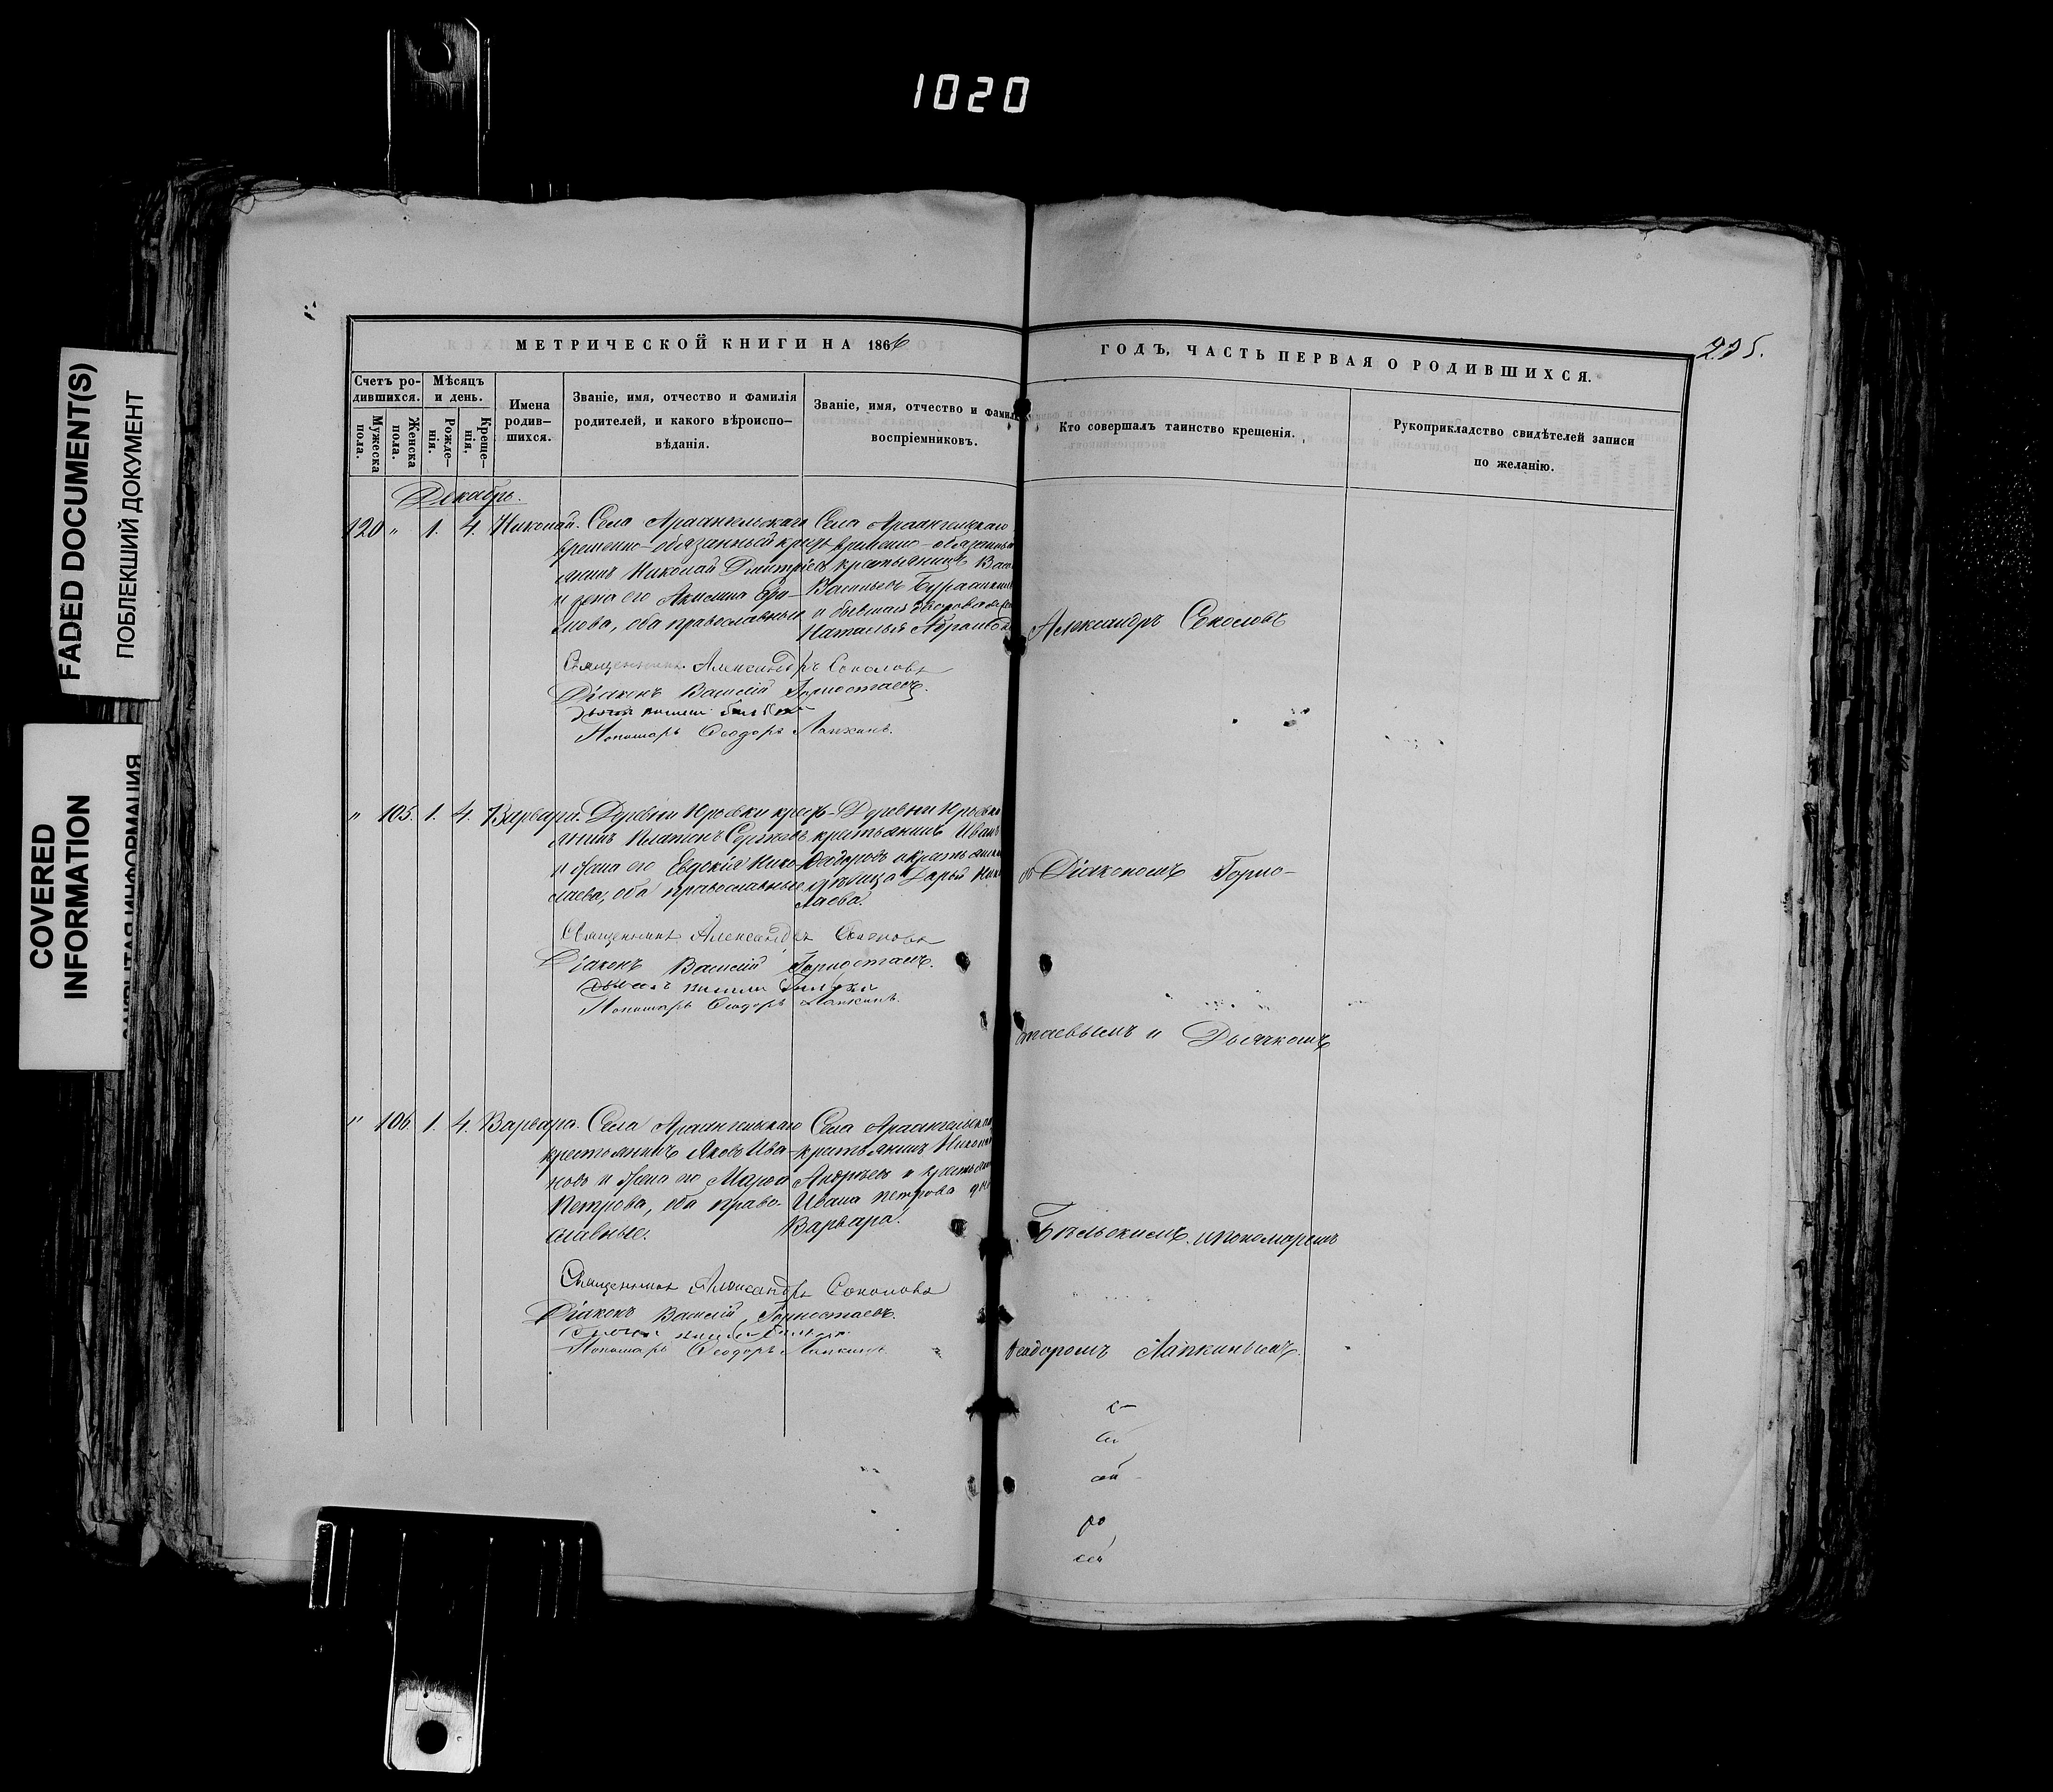 1020
FADED DOCUMENT(S)
ПОБЛЕКШИЙ ДОКУМЕНТ
COVERED
INFORMATION
МЕТРИЧЕСКОЙ КНИГИ НА 1866
ГОДЪ, ЧАСТЬ ПЕРВАЯ О РОДИВШИХСЯ.
235.
Счетъ ро-
дившихся.
Мужеска
пола.
Женска
пола.
Мѣсяцъ
и день.
Рожде-
нія.
Креще-
нія,
Имена
родив-
шихся.
Званіе, имя, отчество и фамилія
родителей, и какого вѣроиспо-
вѣданія.
Званіе, имя, отчество и фамил
воспріемниковъ.
Кто совершалъ таинство крещенія.
Рукоприкладство свидѣтелей записи
по желанію.
Декабрь.
120 " 1. 4. Николай.
Села Архангельскаго
временно-обязанный крест
янинъ Николай Дмитріев
и жена его Акилина
мова, оба православные
Села Архангельскаго
временно-обязанный
крестьянинъ Васи
Васильевъ
и бывшая дворовая
Наталья
Александръ Соколовъ
Священникъ Александръ Соколовъ
Діаконъ Василій Горностаевъ.
Пономарь Ѳеодоръ Лапкинъ.
" 105. 1. 4. Варвара.
Деревни крест
янинъ Платонъ Сергѣевъ
и жена его Евдокія Нико-
лаева, оба православные
Деревни
крестьянинъ Иванъ
Ѳедоровъ и крестьянск
дѣвица Дарья Нико
лаева.
Діакономъ Горно-
Священникъ Александръ Соколовъ
Діаконъ Василій Горностаевъ.
Пономарь Ѳеодоръ Лапкинъ.
стаевымъ и Дьячкомъ
" 106. 1. 4. Варвара.
Села Архангельскаго
крестьянинъ Яковъ Ива-
новъ и жена его Марѳа
Петрова, оба право-
славные.
Села Архангельскаго
крестьянинъ Николай
Андреевъ и крестьян
Ивана Петрова
Варвара.
Бѣльскимъ. и пономаремъ
Священникъ Александръ Соколовъ
Діаконъ Василій Горностаевъ.
Пономарь Ѳеодоръ Лапкинъ.
Ѳеодоромъ Лапкинымъ.